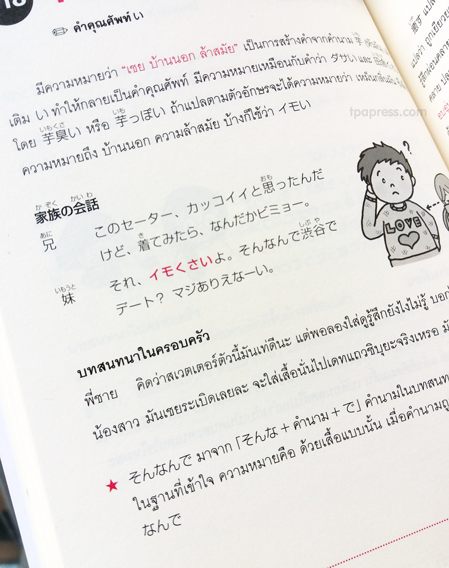 คำคุณศัพท์ い
มีความหมายว่า "เชย บ้านนอก ล้าสมัย" เป็นการสร้างคำจากคำนาม 芋
เติม い ทำให้กลายเป็นคำคุณศัพท์ มีความหมายเหมือนกับคำว่า ダサい และ
โดย 芋臭い หรือ 芋っぽい ถ้าแปลตามตัวอักษรจะได้ความหมายว่า
ความหมายถึง บ้านนอก ความล้าสมัย บ้างก็ใช้ว่า イモい
tpapress.com
家族の会話
兄 このセーター、カッコイイと思ったんだ
けど、着てみたら、なんだかビミョー。
妹 それ、イモくさいよ。そんなんで渋谷で
デート？ マジありえなーい。
LOVE
บทสนทนาในครอบครัว
พี่ชาย คิดว่าสเวตเตอร์ตัวนี้มันเท่ดีนะ แต่พอลองใส่ดูรู้สึกยังไงไม่รู้
น้องสาว มันเชยระเบิดเลยละ จะใส่เสื้อนั่นไปเดทแถวชิบุยะจริงเหรอ
★ そんなんで มาจาก「そんな + คำนาม + で」คำนามในบทสนท
ในฐานที่เข้าใจ ความหมายคือ ด้วยเสื้อแบบนั้น เมื่อคำนามถู
なんで